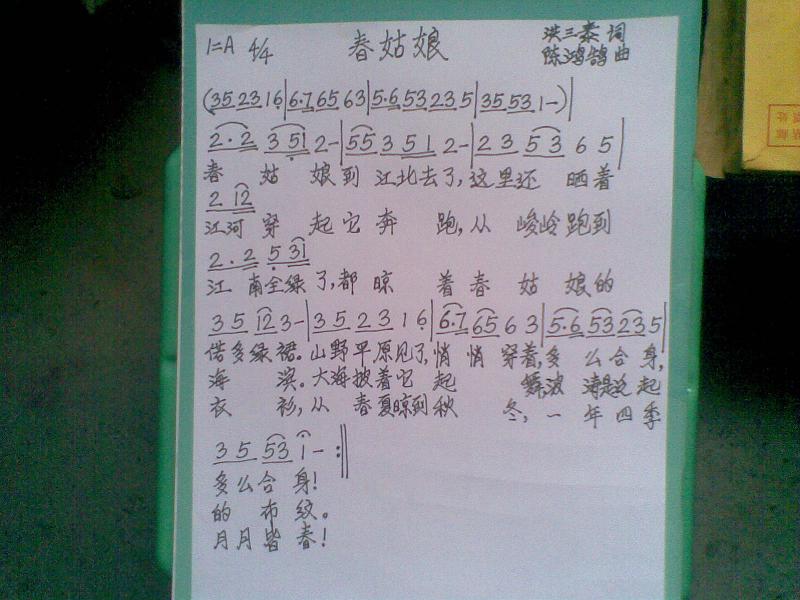 1=A 4/4 春姑娘 洪三泰 词
陈鸿鹄 曲
(35 23 16|6·7 65 63|5·6 53 23 5|35 53 1-)|
2·2 3 51 2-|55 3 51 2-|2 3 5 3 6 5|
春 姑 娘到 江北去了,这里还 晒着
2 12
江河 穿 起它奔 跑,从 峻岭跑到
2·2 5 31
江 南全绿了,都 晾 着春 姑 娘的
3 5 12 3-|3 5 2 3 1 6|6·7 65 6 3|5·6 53 23 5|
偌多绿裙。山野平原见了,悄 悄 穿着,多 么合身,
海 滨。大海披着它 起 舞,波 涛是 起
衣 衫,从 春夏晾到秋 冬,一 年四季
3 5 53 1-:‖
多么合 身!
的 布 纹。
月月皆 春!